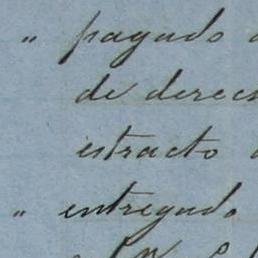 " pagado
de derec
estracto
" entregado